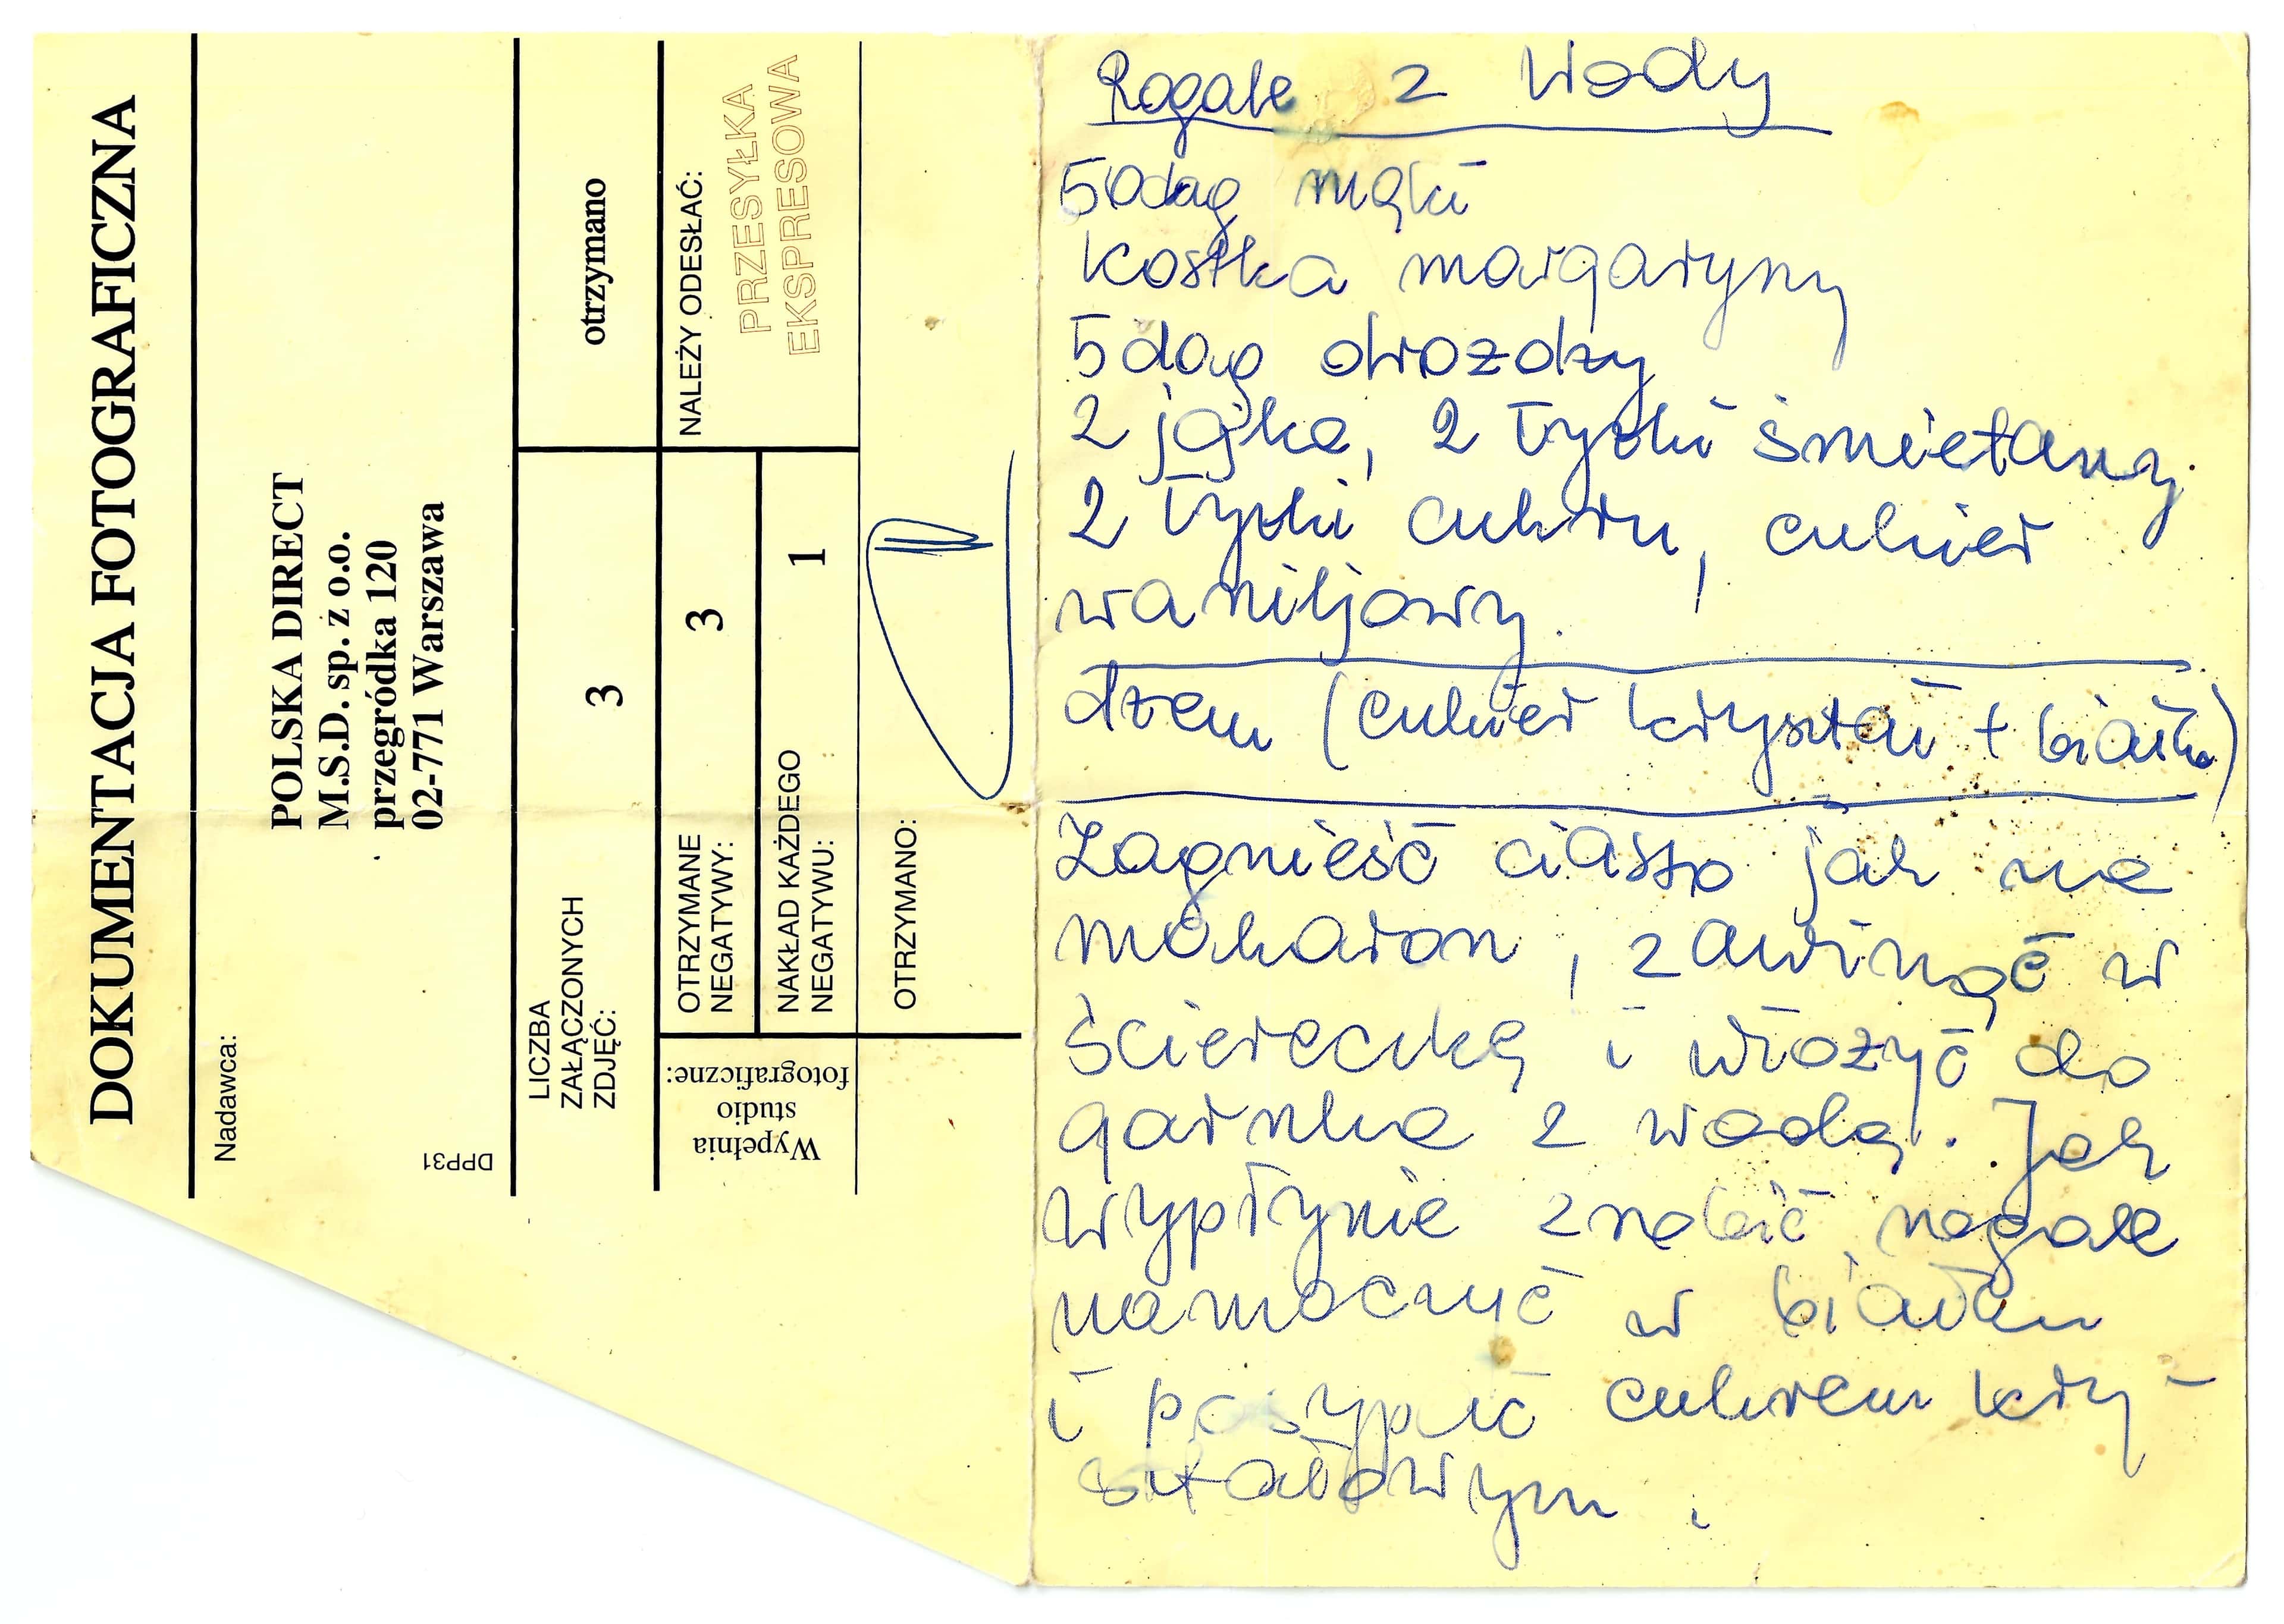 DOKUMENTACJA FOTOGRAFICZNA
Nadawca:
POLSKA DIRECT
M.S.D. sp. z o.o.
przegródka 120
02-771 Warszawa
DPP31
LICZBA
ZAŁĄCZONYCH
ZDJĘĆ:
3
otrzymano
OTRZYMANE
NEGATYWY:
3
NALEŻY ODESŁAĆ:
PRZESYŁKA
EKSPRESOWA
NAKŁAD KAŻDEGO
NEGATYWU:
1
Wypełnia
studio
fotograficzne:
OTRZYMANO:
Rogale z Wody
50dag mąki
kostka margaryny
5 dag drożdży
2 jajka, 2 łyżki śmietany.
2 łyżki cukru, cukier
waniljowy.
dżem (cukier kryształ + białko)
Zagnieść ciasto jak na
makaron, zawinąć w
ściereczkę i włożyć do
garnka z wodą. Jak
wypłynie zrobić rogale
namoczyć w białku
i posypać cukrem kry-
ształowym.